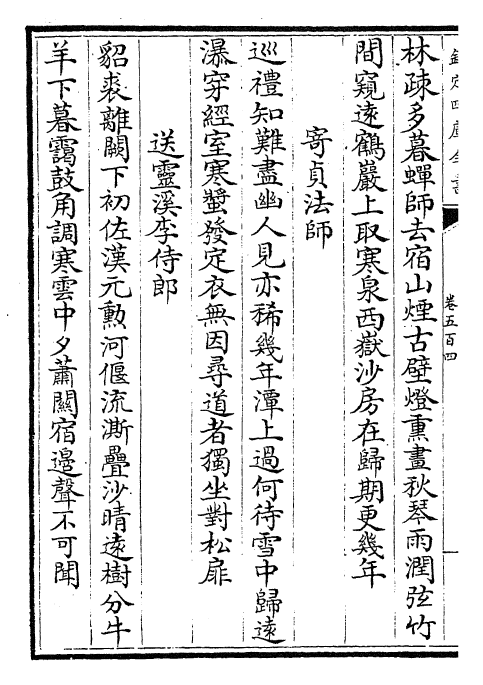 欽定四庫全書
卷五百四
林疎多暮蟬師去宿山煙古壁燈熏畫秋琴雨潤弦竹
間窺遠鶴巖上取寒泉西嶽沙房在歸期更幾年
寄貞法師
巡禮知難盡幽人見亦稀幾年潭上過何待雪中歸遠
瀑穿經室寒螿發定衣無因尋道者獨坐對松扉
送靈溪李侍郎
貂裘離闕下初佐漢元勲河偃流澌疊沙晴遠樹分牛
羊下暮靄鼓角調寒雲中夕蕭關宿邊聲不可聞